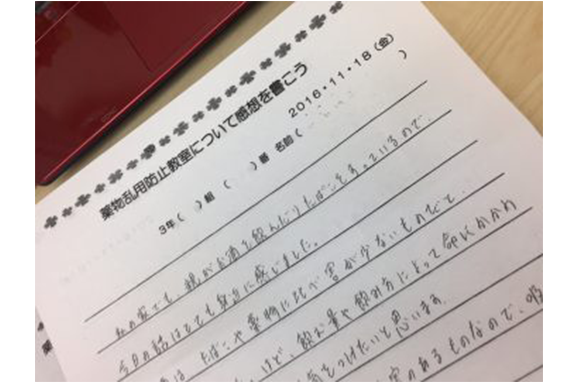 薬物乱用防止教室について感想を書こう
2016・11・18（金）
3年（　）組（　）番 名前（　）
私の家でも、親がお酒を飲んだりたばこをすっているので、
今日の話はとても身近に感じました。
は、たばこや薬物に比べ害が少ないものだと、
けど、飲む量や飲み方によって命にかかわ
気をつけたいと思います。
害のあるものなので、